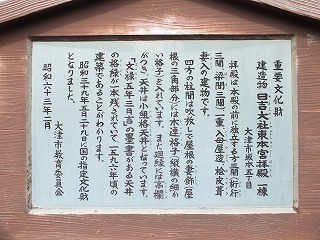 重要文化財
建造物 日吉大社東本宮拝殿 一棟
大津市坂本五丁目
拝殿は本殿の前に独立する方三間(桁行
三間、梁間三間)、一重、入母屋造、桧皮葺、
妻入の建物です。
四方の柱間は吹放しで屋根の妻飾(屋
根の三角部分)には木連格子(縦横の細か
い格子)を入れています。また廻縁には高欄
がつき、天井は小組格天井となっています。
「文禄五年三月吉」の墨書がある天井
の格縁が一本残されていて一五九六年頃の
建築であることがわかります。
昭和三十九年五月二十九日に国の指定文化財
となりました。
昭和六十三年二月
大津市教育委員会